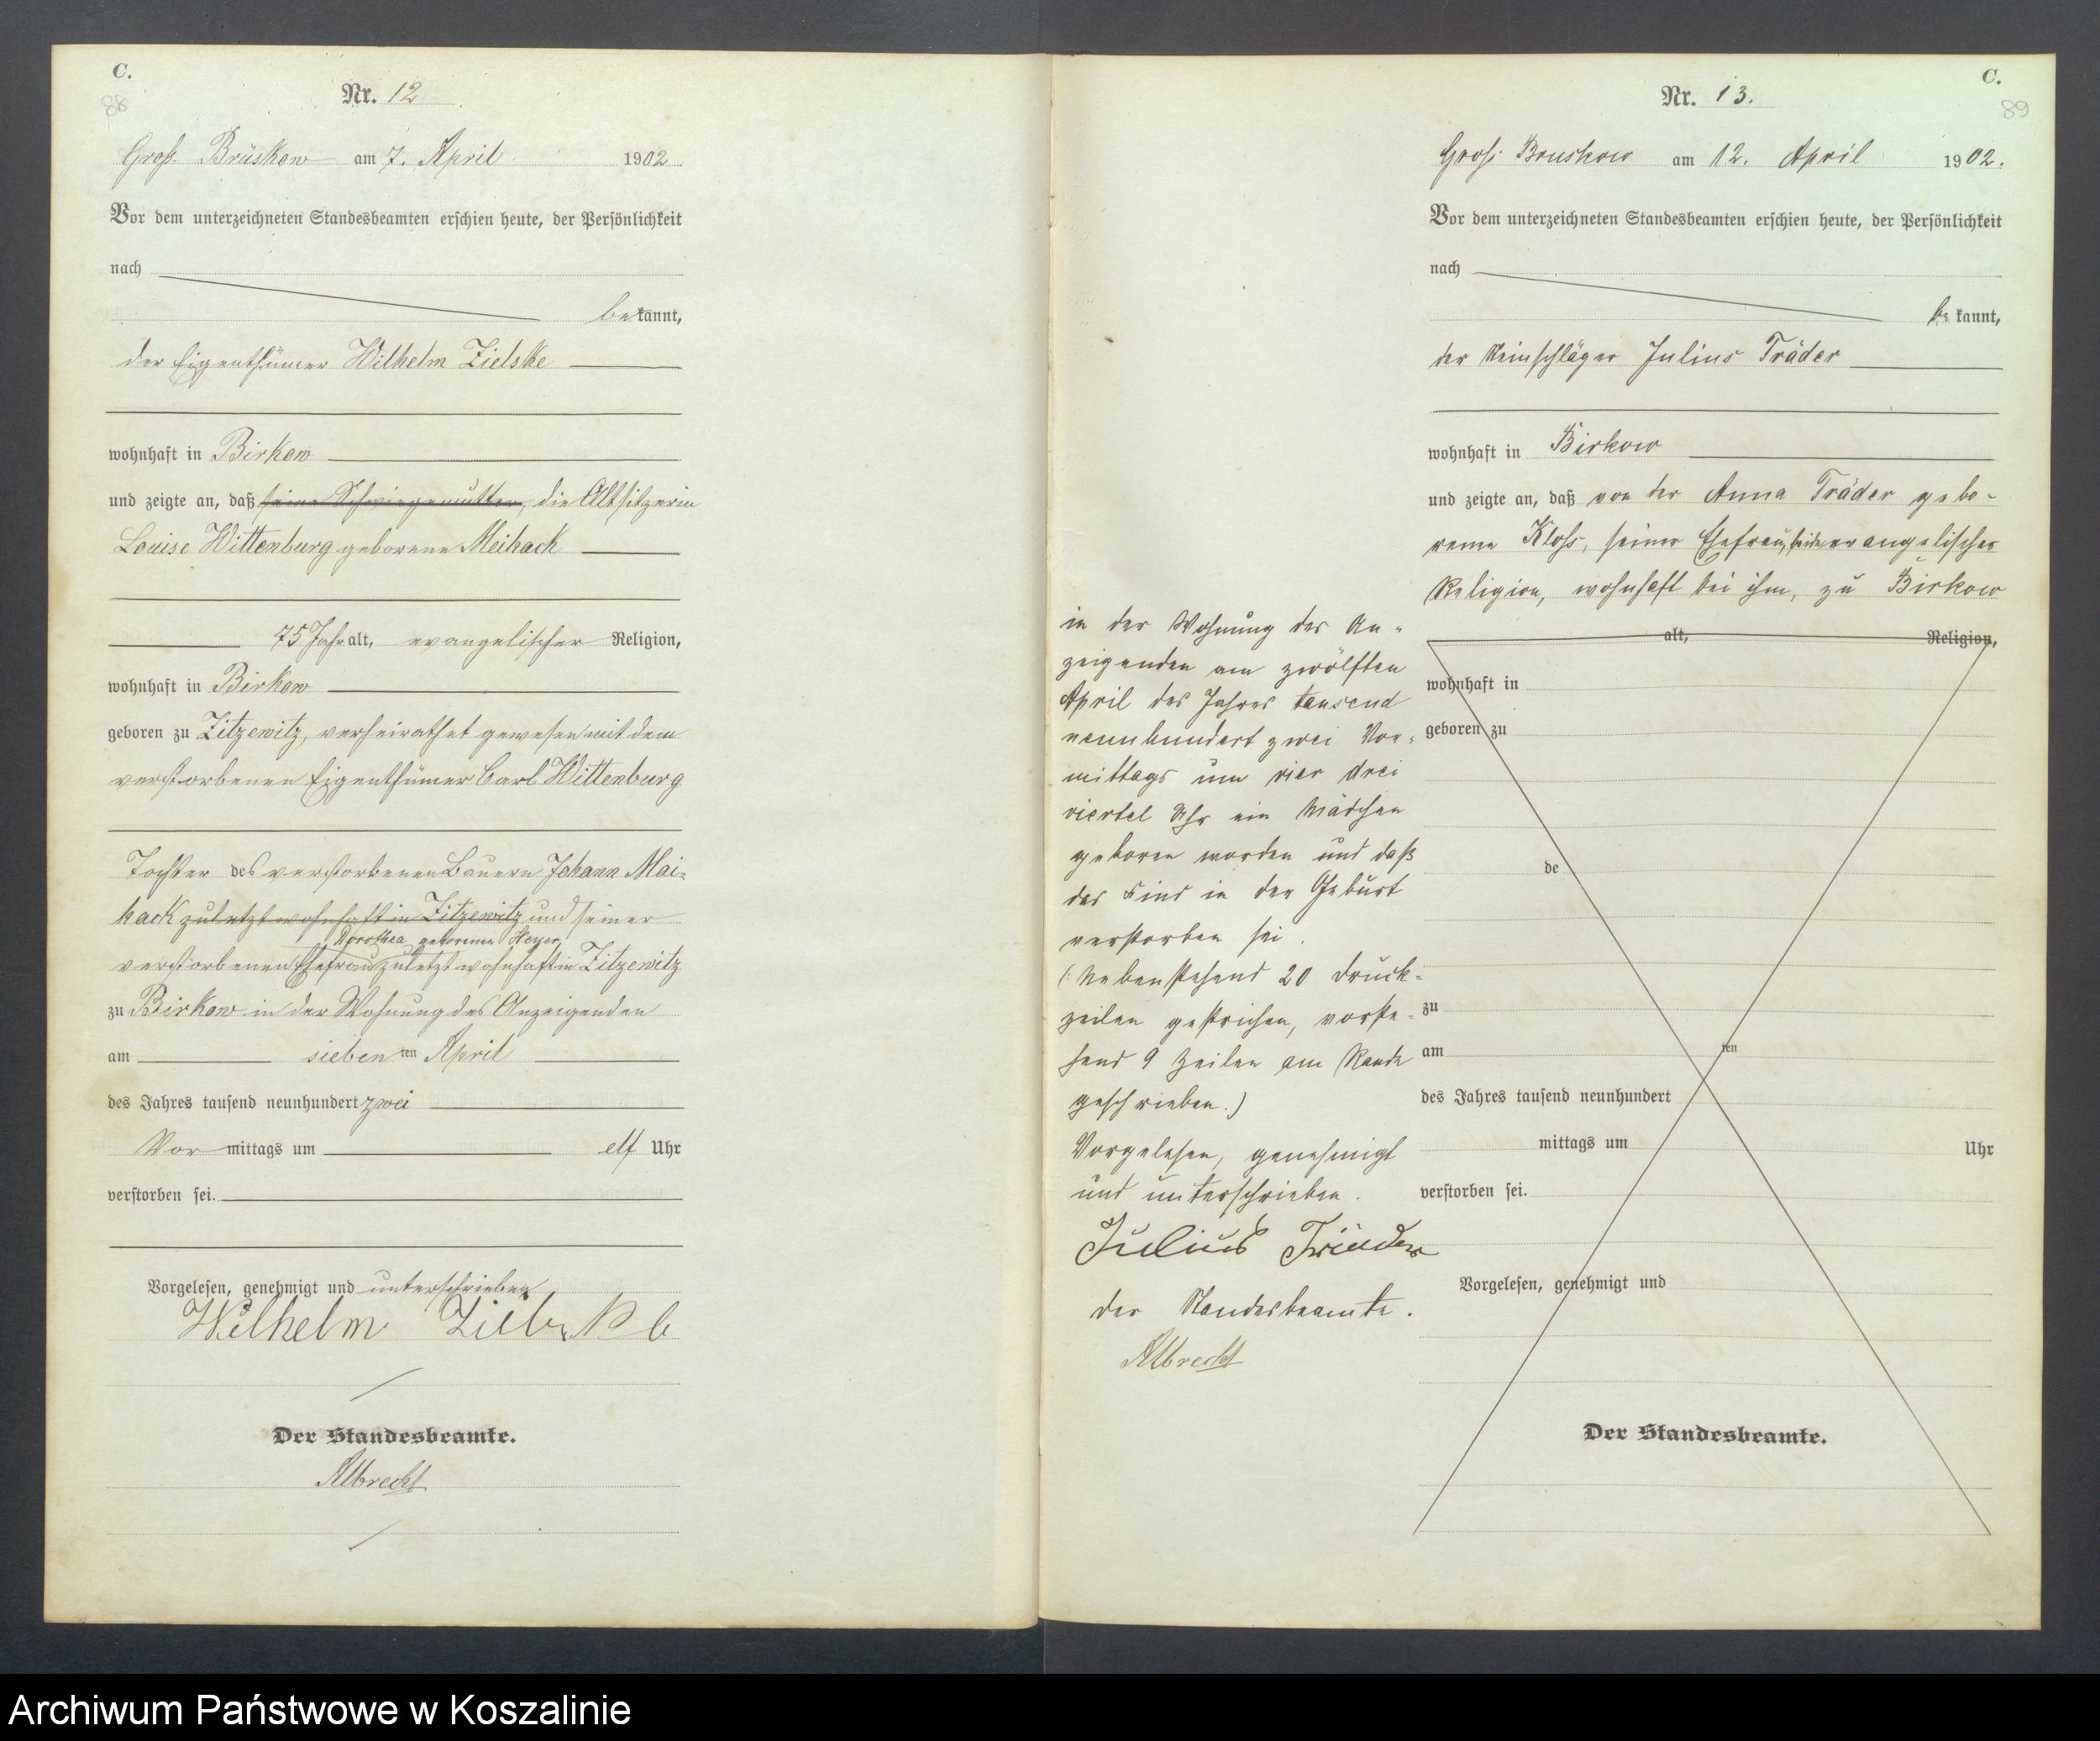 C.
88
Nr. 12
Groß Brüskow am 7. April 1902
Vor dem unterzeichneten Standesbeamten erschien heute, der Persönlichkeit
nach
bekannt,
der Eigenthümer Wilhelm Zielske
wohnhaft in Birkow
und zeigte an, daß seine Schwiegermutter, die Altsitzerin
Louise Wittenburg geborene Meihack
75 Jahr alt, evangelischer Religion,
wohnhaft in Birkow
geboren zu Zitzewitz, verheirathet gewesen mit dem
verstorbenen Eigenthümer Carl Wittenburg
Tochter des verstorbenen Bauern Johann Mai-
hack zuletzt wohnhaft in Zitzewitz und seiner
Dorothea geborene Heyer
verstorbenen Ehefrau zuletzt wohnhaft in Zitzewitz
zu Birkow in der Wohnung des Anzeigenden
am siebenten April
des Jahres tausend neunhundert zwei
Vormittags um elf Uhr
verstorben sei.
Vorgelesen, genehmigt und unterschrieben
Wilhelm Zielske
Der Standesbeamte.
Albrecht
C.
89
Nr. 13.
Groß Brüskow am 12. April 1902.
Vor dem unterzeichneten Standesbeamten erschien heute, der Persönlichkeit
nach
bekannt,
der Steinschläger Julius Träder
wohnhaft in Birkow
und zeigte an, daß von der Anna Träder gebo-
rene Kloß, seiner Ehefrau, beide evangelischer
Religion, wohnhaft bei ihm, zu Birkow
alt, Religion,
wohnhaft in
geboren zu
de
zu
am ten
des Jahres tausend neunhundert
mittags um Uhr
verstorben sei.
Vorgelesen, genehmigt und
Der Standesbeamte.
in der Wohnung des An-
zeigenden am zwölften
April des Jahres tausend
neunhundert zwei Vor-
mittags um vier drei
viertel Uhr ein Mädchen
geboren worden und daß
das Kind in der Geburt
verstorben sei.
(: Nebenstehend 20 Druck-
zeilen gestrichen, vorste-
hend 9 Zeilen am Rande
geschrieben.)
Vorgelesen, genehmigt
und unterschrieben.
Julius Träder
der Standesbeamte.
Albrecht
Archiwum Państwowe w Koszalinie